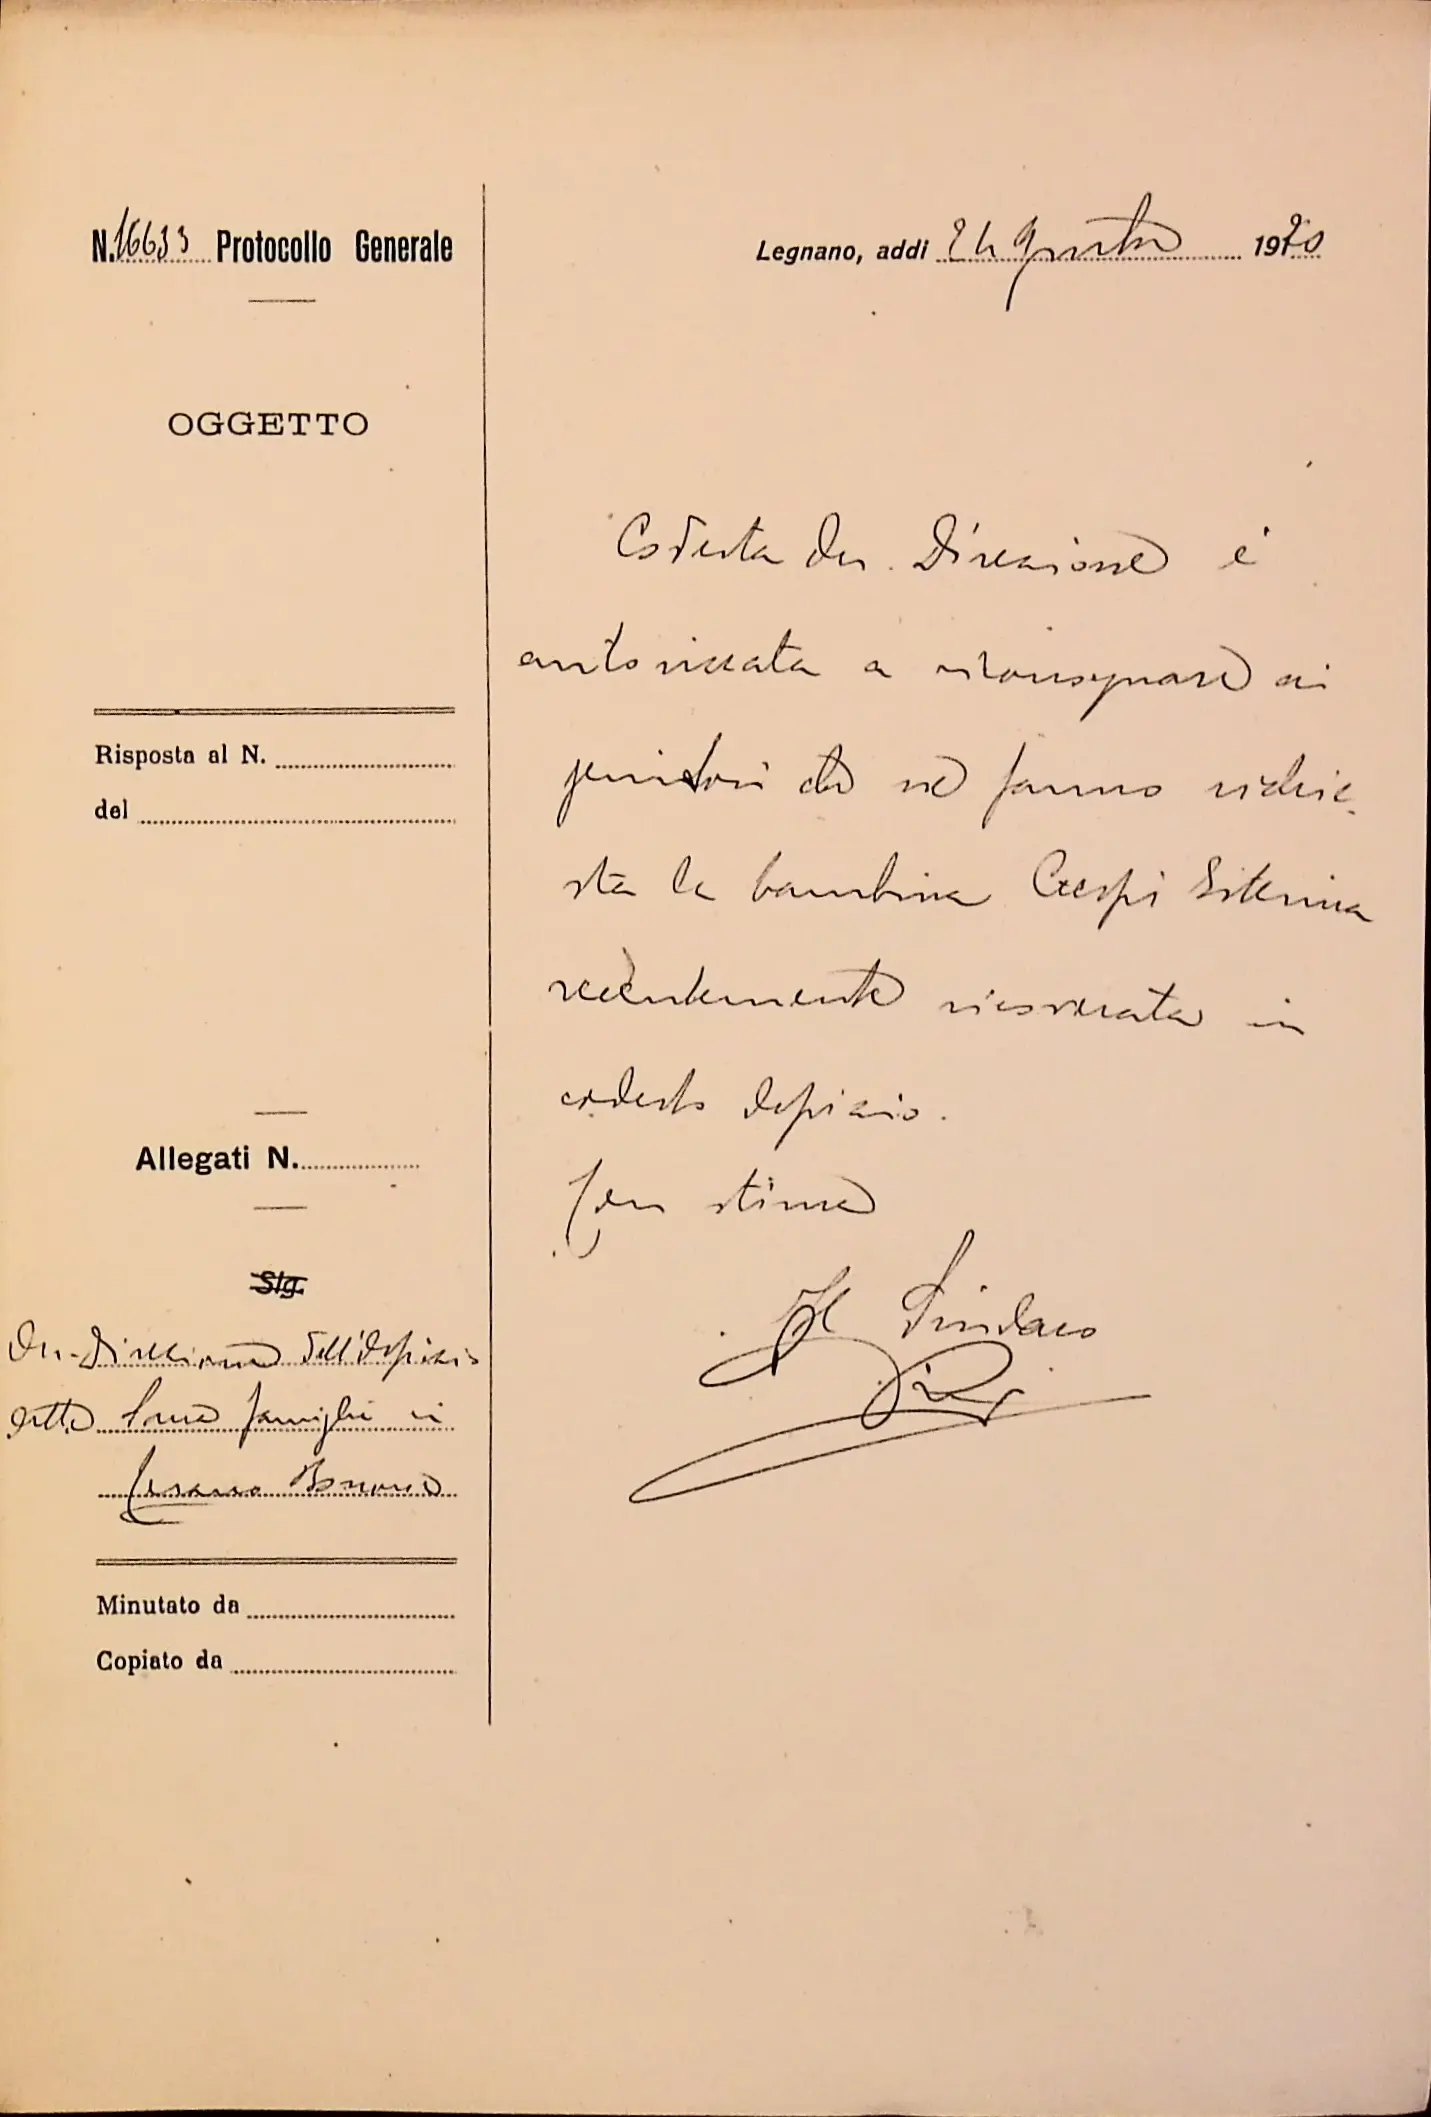 N. 16633 Protocollo Generale
Legnano, addi 24 Agosto 1920
OGGETTO
Codesta On. Direzione è
autorizzata a riconsegnare ai
genitori che ne fanno richie-
sta la bambina Crespi Ester­ina
recentemente ricoverata in
codesto Ospizio.
Con stima
Il Sindaco
Risposta al N.
del
Allegati N.
Sig.
On. Direzione dell'Ospizio
famiglie in
Cesano Boscone
Minutato da
Copiato da